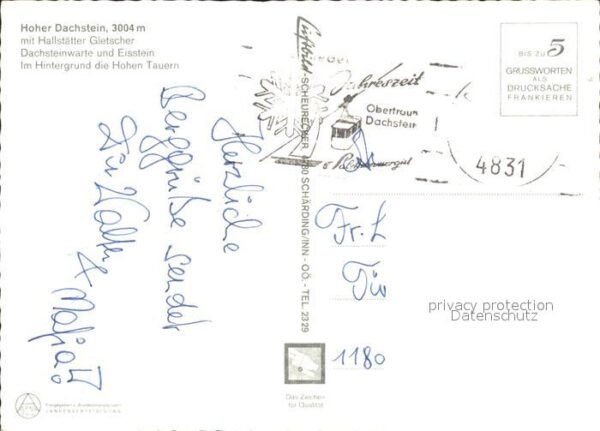 Hoher Dachstein, 3004 m
mit Hallstätter Gletscher
Dachsteinwarte und Eisstein
Im Hintergrund die Hohen Tauern
Herzliche
Berggrüße sendet
Walter
&
Luftbild-SCHEURECKER, 4780 SCHÄRDING/INN - OÖ. - TEL. 2329
Jahreszeit
Obertraun
Dachstein
4831
BIS ZU 5
GRUSSWORTEN
ALS
DRUCKSACHE
FRANKIEREN
Fr. L
1180
privacy protection
Datenschutz
Das Zeichen
für Qualität